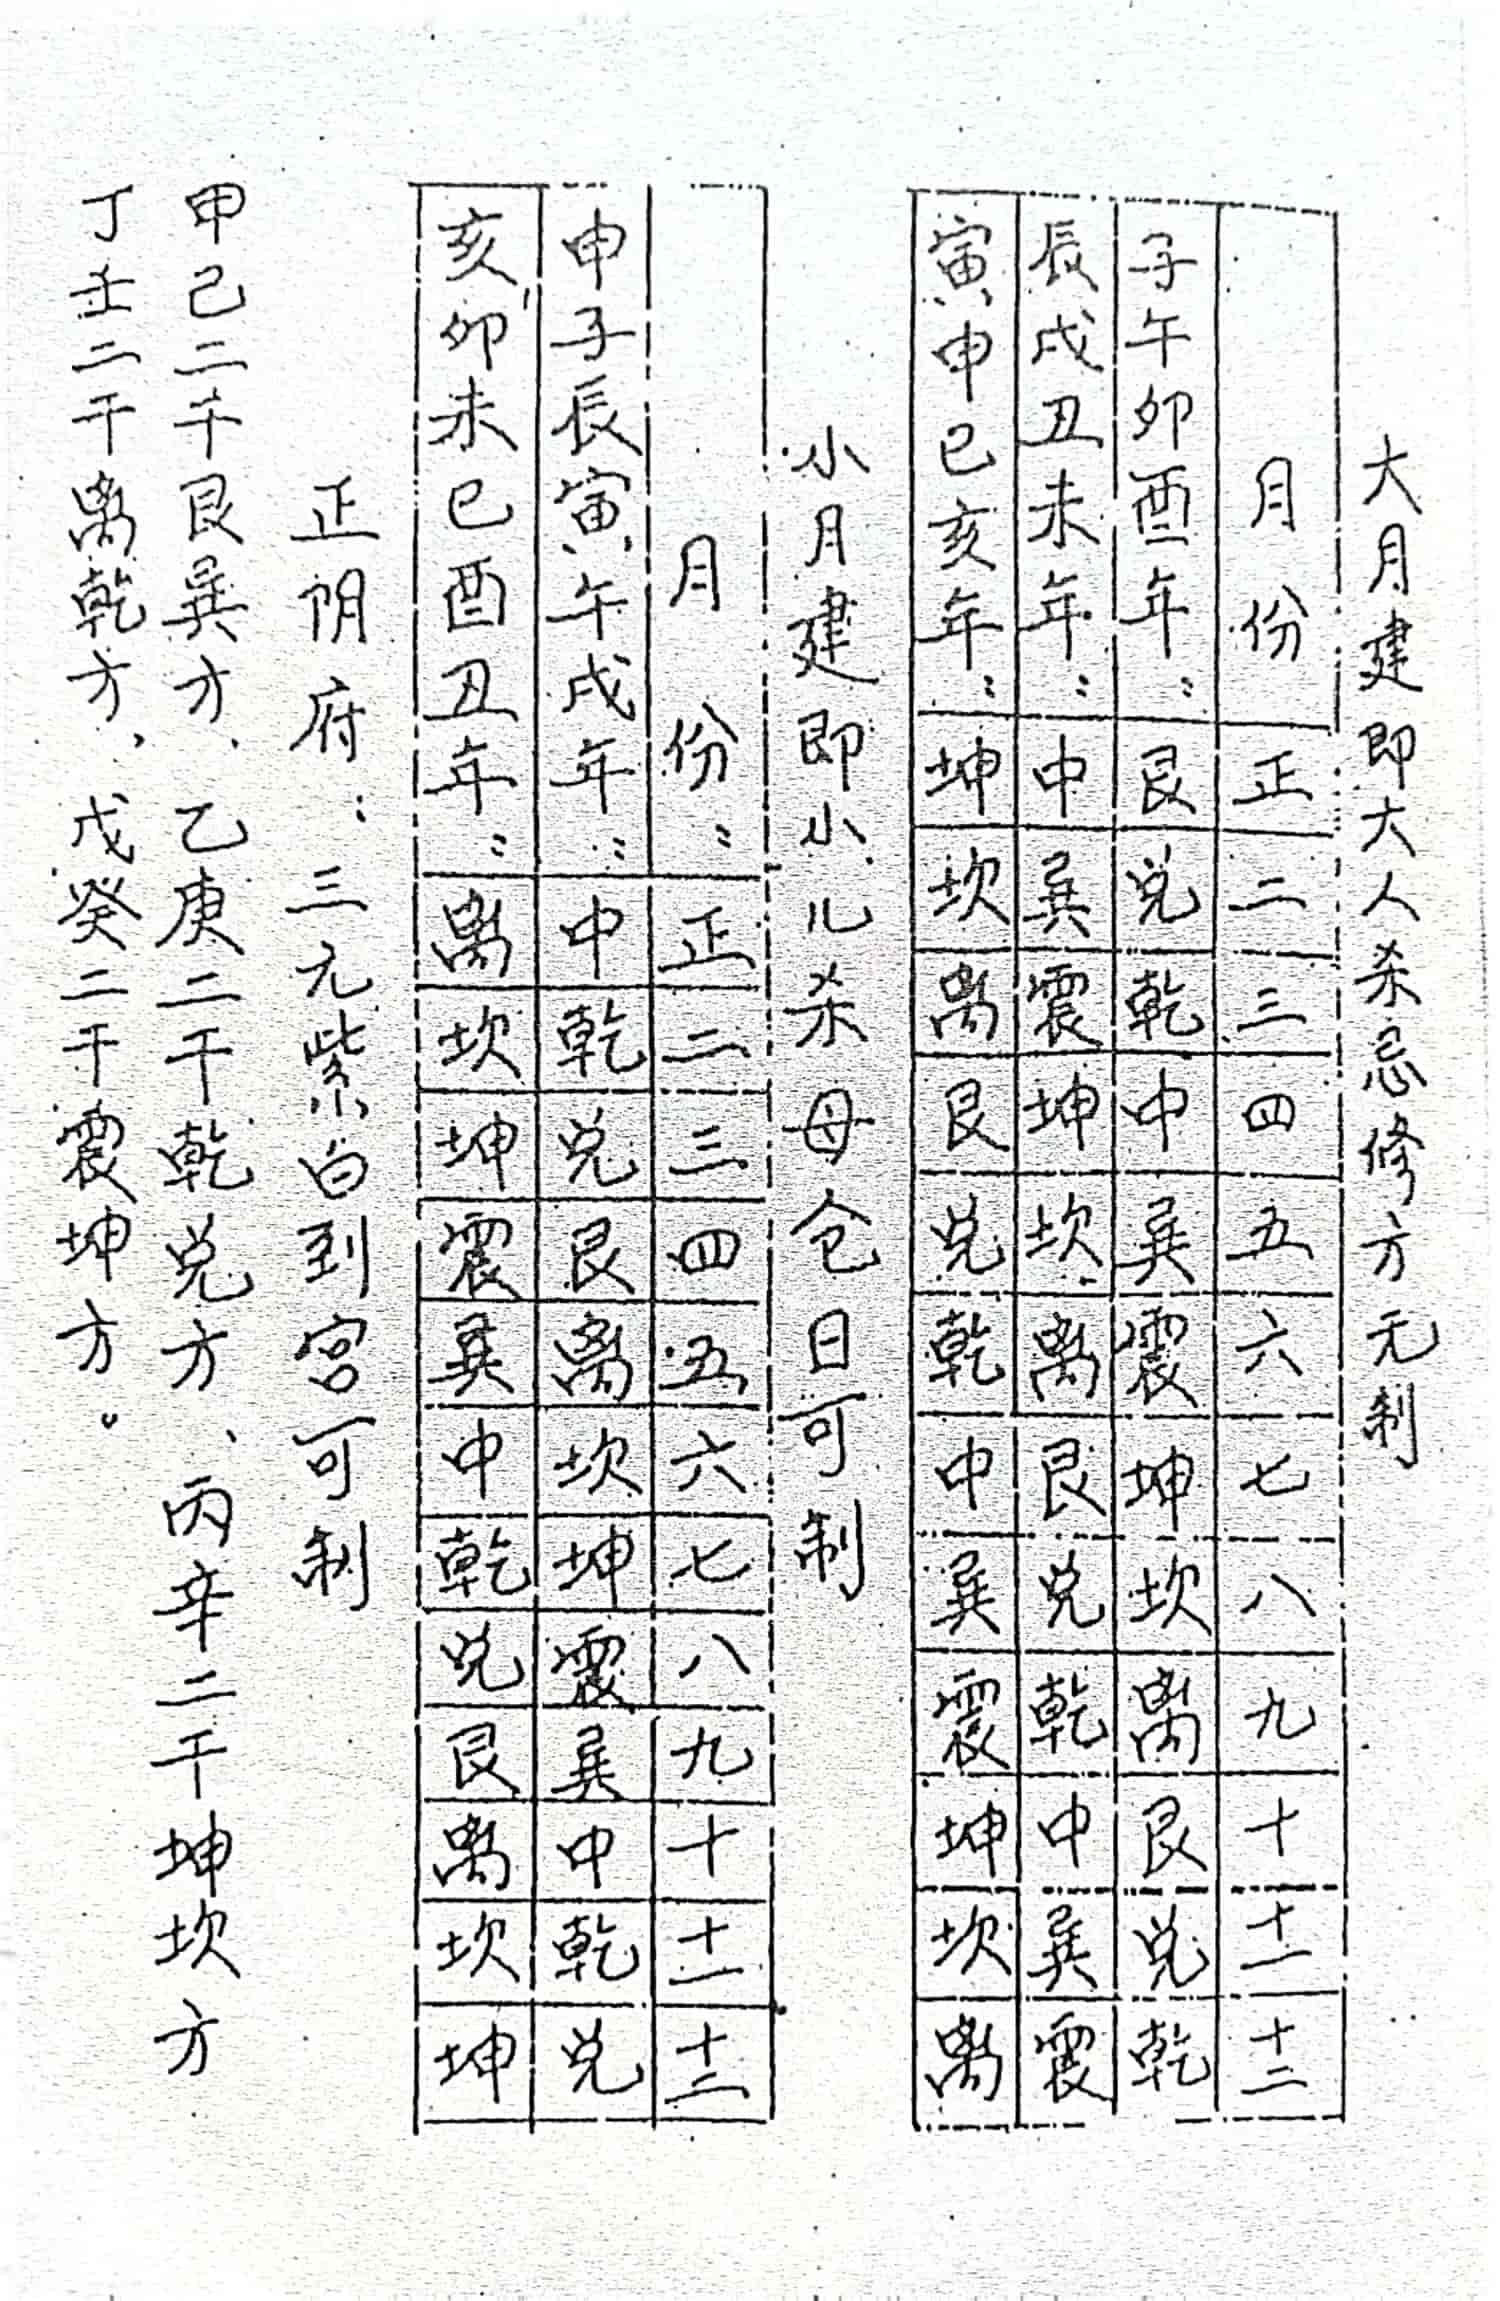 大月建即大人杀忌修方无制
月份 正 二 三 四 五 六 七 八 九 十 十一 十二
子午卯酉年: 艮 兑 乾 中 巽 震 坤 坎 离 艮 兑 乾
辰戌丑未年: 中 巽 震 坤 坎 离 艮 兑 乾 中 巽 震
寅申巳亥年: 坤 坎 离 艮 兑 乾 中 巽 震 坤 坎 离
小月建即小儿杀母仓日可制
月份: 正 二 三 四 五 六 七 八 九 十 十一 十二
申子辰寅午戌年: 中 乾 兑 艮 离 坎 坤 震 巽 中 乾 兑
亥卯未巳酉丑年: 离 坎 坤 震 巽 中 乾 兑 艮 离 坎 坤
正阴府:三元紫白到宫可制
甲己二干艮巽方、乙庚二干乾兑方、丙辛二干坤坎方
丁壬二干离乾方、戊癸二干震坤方。